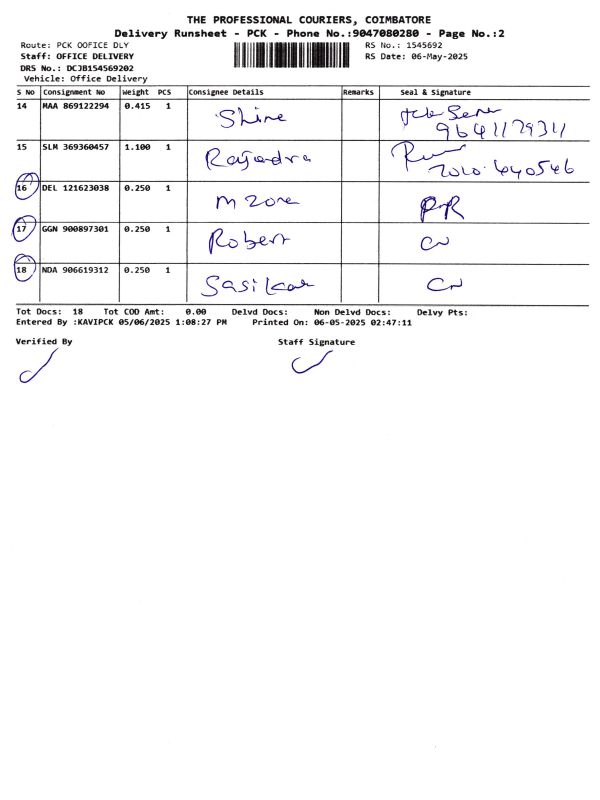 THE PROFESSIONAL COURIERS, COIMBATORE
Delivery Runsheet - PCK - Phone No.:9047080280 - Page No.:2
Route: PCK OOFICE DLY RS No.: 1545692
Staff: OFFICE DELIVERY RS Date: 06-May-2025
DRS No.: DCJB154569202
Vehicle: Office Delivery
S No Consignment No Weight PCS Consignee Details Remarks Seal & Signature
14 MAA 869122294 0.415 1 Shine
15 SLM 369360457 1.100 1 Rajendra
16 DEL 121623038 0.250 1 M Zone PR
17 GGN 900897301 0.250 1 Robert
18 NDA 906619312 0.250 1 Sasikar
Tot Docs: 18 Tot COD Amt: 0.00 Delvd Docs: Non Delvd Docs: Delvy Pts:
Entered By :KAVIPCK 05/06/2025 1:08:27 PM Printed On: 06-05-2025 02:47:11
Verified By Staff Signature